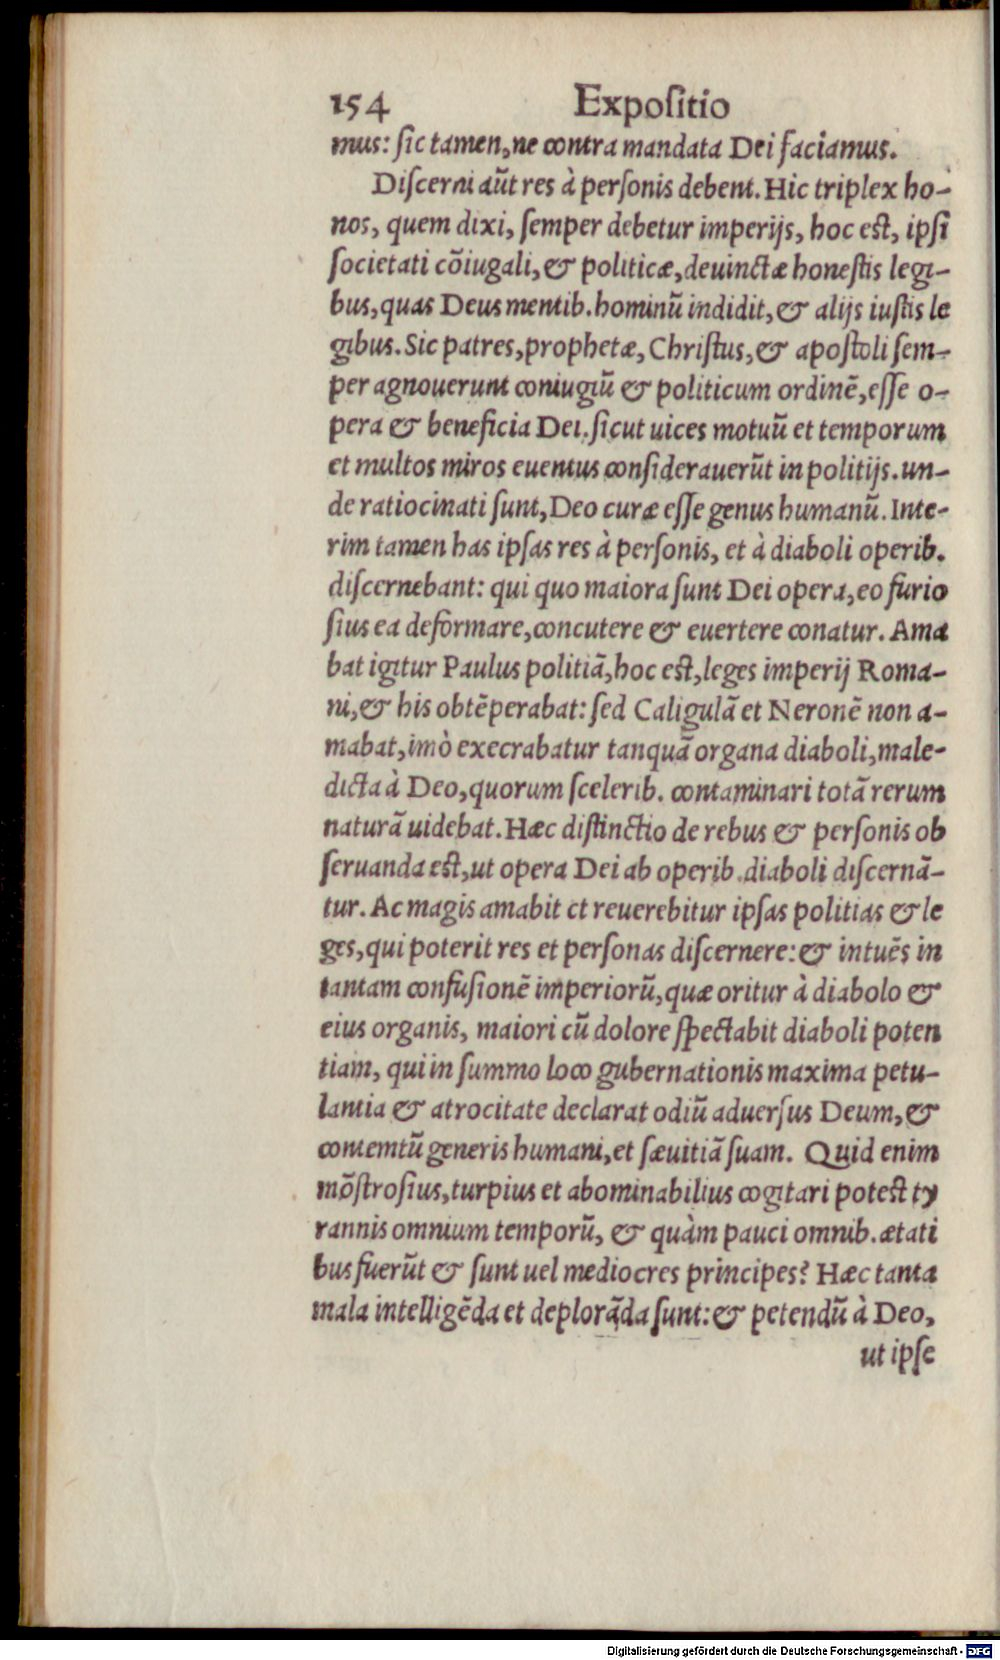 154 Expoſitio
mus: ſic tamen, ne contra mandata Dei faciamus.
Diſcerni aũt res à perſonis debent. Hic triplex ho-
nos, quem dixi, ſemper debetur imperijs, hoc eſt, ipſi
ſocietati cõiugali, & politicæ, deuinctæ honeſtis legi-
bus, quas Deus mentib. hominũ indidit, & alijs iuſtis le
gibus. Sic patres, prophetæ, Chriſtus, & apoſtoli ſem-
per agnouerunt coniugiũ & politicum ordinẽ, eſſe o-
pera & beneficia Dei. ſicut uices motuũ et temporum
et multos miros euentus conſiderauerũt in politijs. un-
de ratiocinati ſunt, Deo curæ eſſe genus humanũ. Inte-
rim tamen has ipſas res à perſonis, et à diaboli operib.
diſcernebant: qui quo maiora ſunt Dei opera, eo furio
ſius ea deformare, concutere & euertere conatur. Ama
bat igitur Paulus politiã, hoc eſt, leges imperij Roma-
ni, & his obtẽperabat: ſed Caligulã et Neronẽ non a-
mabat, imò execrabatur tanquã organa diaboli, male-
dicta à Deo, quorum ſcelerib. contaminari totã rerum
naturã uidebat. Hæc diſtinctio de rebus & perſonis ob
ſeruanda eſt, ut opera Dei ab operib. diaboli diſcernã-
tur. Ac magis amabit et reuerebitur ipſas politias & le
ges, qui poterit res et perſonas diſcernere: & intuẽs in
tantam confuſionẽ imperiorũ, quæ oritur à diabolo &
eius organis, maiori cũ dolore ſpectabit diaboli poten
tiam, qui in ſummo loco gubernationis maxima petu-
lantia & atrocitate declarat odiũ aduerſus Deum, &
contemtũ generis humani, et ſæuitiã ſuam. Quid enim
mõſtroſius, turpius et abominabilius cogitari poteſt ty
rannis omnium temporũ, & quàm pauci omnib. ætati
bus fuerũt & ſunt uel mediocres principes? Hæc tanta
mala intelligẽda et deplorãda ſunt: & petendũ à Deo,
ut ipſe
Digitalisierung gefördert durch die Deutsche Forschungsgemeinschaft - DFG